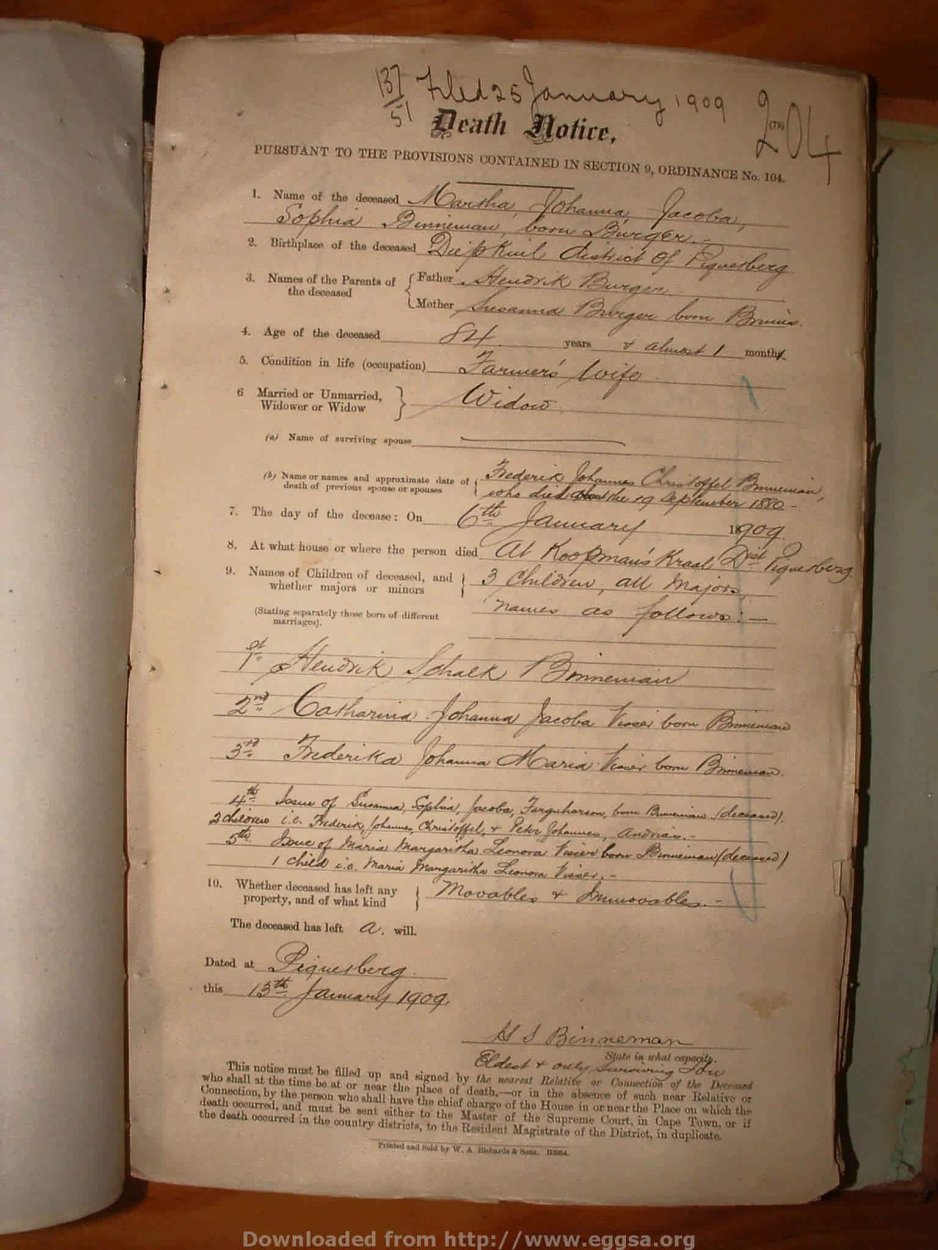 137 Filed 25 January 1909
51
204
(79)
Death Notice,
PURSUANT TO THE PROVISIONS CONTAINED IN SECTION 9, ORDINANCE No. 104.
1. Name of the deceased Martha, Johanna, Jacoba,
Sophia Binneman, born Burger.
2. Birthplace of the deceased Diepkuil district of Piquetberg
3. Names of the Parents of the deceased { Father Hendrik Burger
Mother Susanna Burger born Bruins.
4. Age of the deceased 84 years & almost 1 month
5. Condition in life (occupation) Farmer's Wife
6 Married or Unmarried, Widower or Widow } Widow
(a) Name of surviving spouse
(b) Name or names and approximate date of death of previous spouse or spouses { Frederik Johannes Christoffel Binneman,
who died the 19 September 1880.-
7. The day of the decease: On 6th January 1909
8. At what house or where the person died At Koopman's Kraal Dist Piquetberg
9. Names of Children of deceased, and whether majors or minors { 3 Children, all Majors,
(Stating separately those born of different marriages). names as follows:-
1st Hendrik Schalk Binneman
2nd Catharina Johanna Jacoba Visser born Binneman
3rd Frederika Johanna Maria Visser born Binneman.
4th Issue of Susanna, Sophia, Jacoba, Farquharson, born Binneman (deceased),
2 children i.e. Frederik, Johannes, Christoffel, & Petrus Johannes, Andrias.-
5th Issue of Maria Margaritha Leonora Visser born Binneman (deceased)
1 child i.e. Maria Margaritha Leonora Visser.-
10. Whether deceased has left any property, and of what kind { Movables & Immovables.-
The deceased has left A. will.
Dated at Piquetberg.
this 13th January 1909.
H S Binneman
State in what capacity.
Eldest & only surviving Son
This notice must be filled up and signed by the nearest Relative or Connection of the Deceased
who shall at the time be at or near the place of death,—or in the absence of such near Relative or
Connection, by the person who shall have the chief charge of the House in or near the Place on which the
death occurred, and must be sent either to the Master of the Supreme Court, in Cape Town, or if
the death occurred in the country districts, to the Resident Magistrate of the District, in duplicate.
Printed and Sold by W. A. Richards & Sons.
Downloaded from http://www.eggsa.org